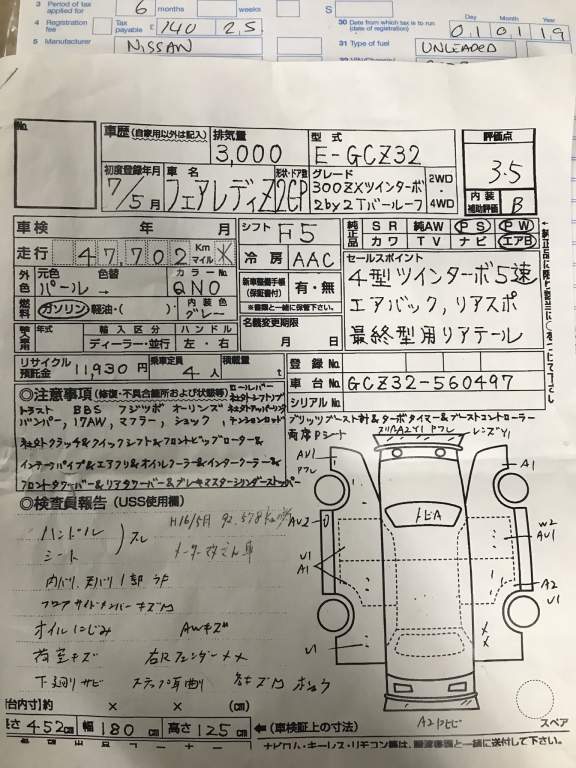 3 Period of tax applied for 6 months weeks S
4 Registration fee Tax payable £ 140 25
30 Date from which tax is to run (date of registration) Day Month Year 01 01 19
5 Manufacturer NISSAN
31 Type of fuel UNLEADED
No.
車歴 (自家用以外は記入)
排気量 3,000
型式 E-GCZ32
評価点 3.5
初度登録年月 7/5月
車名 フェアレディZ
形状・ドア数 2CP
グレード 300ZXツインターボ 2by2Tバールーフ
2WD・4WD
内装補助評価 B
車検 年 月
シフト F5
純正品 SR 純AW PS PW
カワ TV ナビ エアB
走行 47,702 Km マイル ※
冷房 AAC
セールスポイント
4型ツインターボ5速
エアバック,リアスポ
最終型用リアテール
外色 元色 パール→ 色替 カラーNo. QN0
新車整備手帳(保証書付) 有・無
※書類と一緒に保管下さい。
燃料 ガソリン 軽油・( ) 内装色 グレー
輸入車用 年式 輸入区分 ディーラー・並行 ハンドル 左・右
名義変更期限 月 日
リサイクル預託金 11,930円 乗車定員 4人 積載量 t
登録No.
車台No. GCZ32-560497
シリアルNo.
◎注意事項 (修復・不具合箇所および状態等)
ロールバー
トラスト BBS フジツボ オーリンズ
バンパー,17AW,マフラー,ショック,テンションロッド
ブリッツブースト計&ターボタイマー&ブーストコントローラー
社外クラッチ&クイックシフト&フロントビッグローター&
インテークパイプ&エアクリ&オイルクーラー&インタークーラー&
フロントタワーバー&リアタワーバー&ブレーキマスターシリンダーストッパー
両席Pシート
◎検査員報告 (USS使用欄)
ハンドル シート スレ
H16/5月 92,578km
メーター改ざん車
フロアサイドメンバーキズ凹
オイルにじみ AWキズ
荷室キズ 右Rフェンダーメメ
下廻りサビ
A1
AU1
AU2
U1
A1
U1
トビA
W2
AU1
A2
U1
A2トビ
スペア
荷台内寸)約 × × (cm)
長さ 452cm 幅 180cm 高さ 125cm ←(車検証上の寸法)
ナビロム・キーレス・リモコン等は、譲渡書類と一緒に送付して下さい。